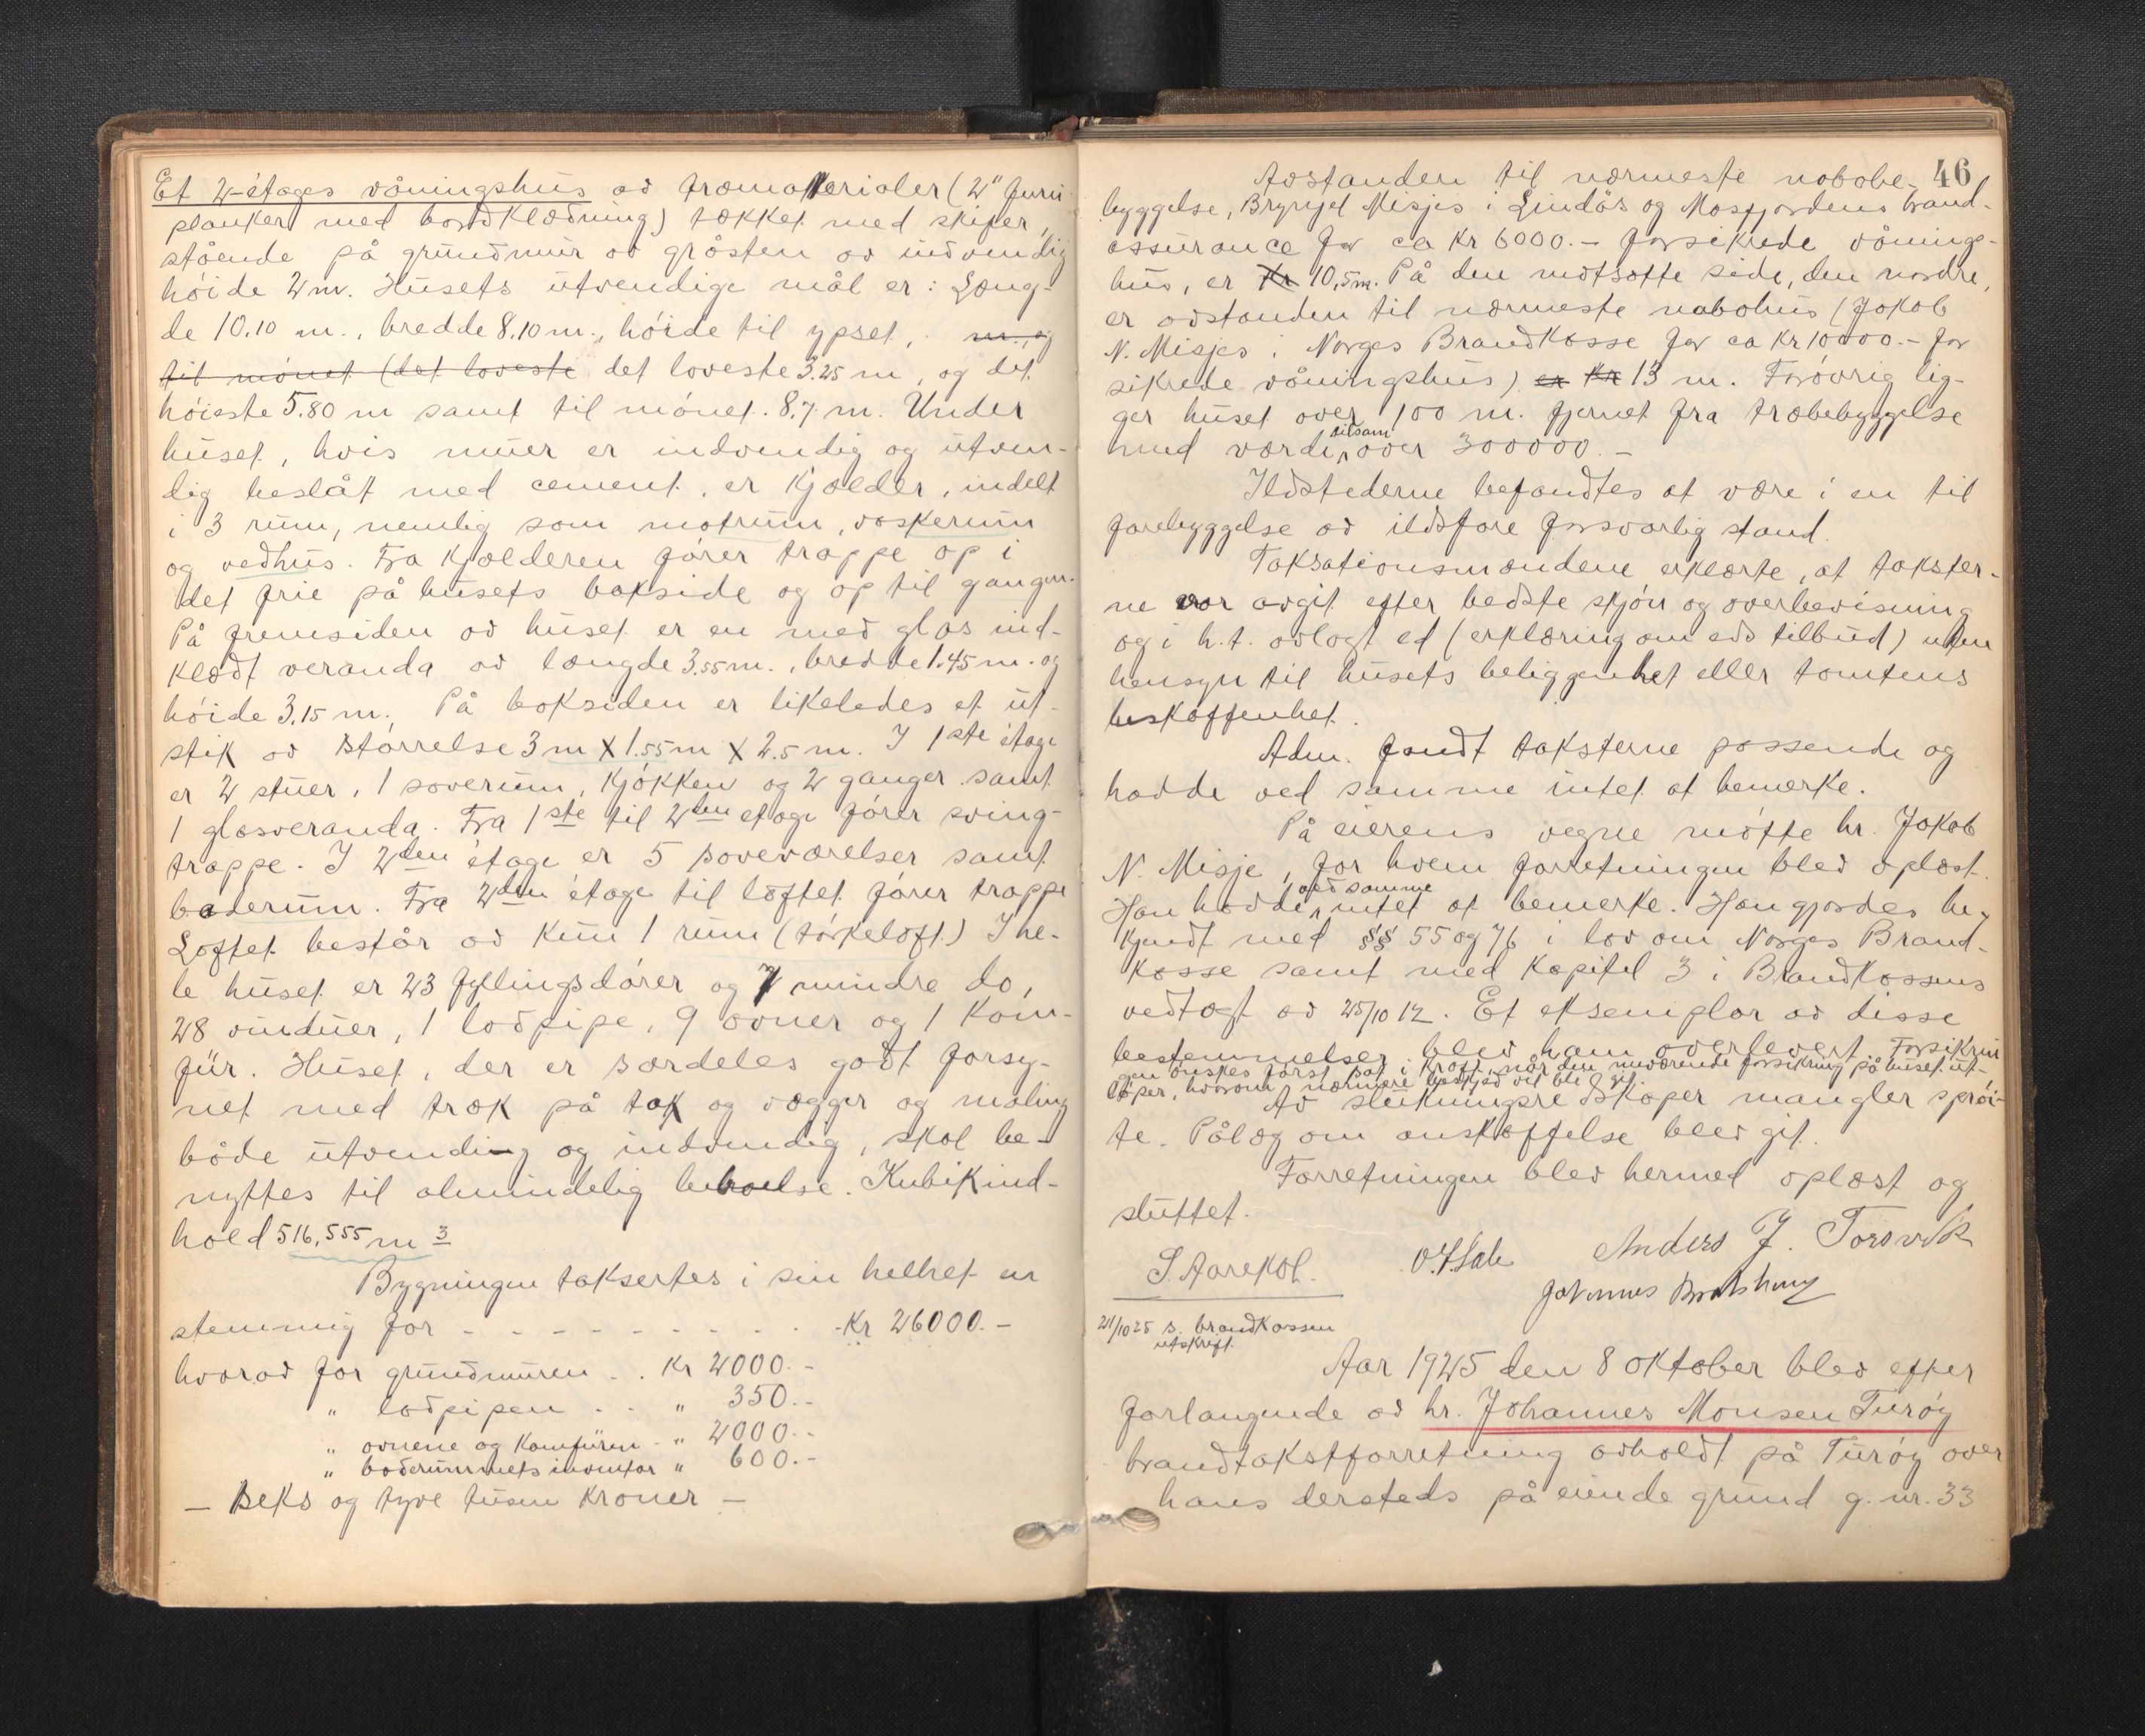 Et 2-étages våningshus av træmaterialer (2" furu
planker med bordklædning) tækket med skifer,
stående på grundmur av gråsten av indvendig
høide 2 m. Husets utvendige mål er: Læng-
de 10.10 m., bredde 8.10 m., høide til ypset, m. og
til mønet (det laveste det laveste 3.25 m, og det
høieste 5.80 m samt til mønet 8,7 m. Under
huset, hvis muer er indvendig og utven-
dig beslåt med cement, er kjælder, indelt
i 3 rum, nemlig som matrum, vaskerum
og vedhus. Fra kjælderen fører trappe op i
det frie på husets bakside og op til gangen.
På fremsiden av huset er en med glas ind-
klædt veranda av længde 3.55 m., bredde 1.45 m. og
høide 3.15 m. På baksiden er likeledes et ut-
stik av størrelse 3 m x 1.55 m x 2.5 m. I 1ste étage
er 2 stuer, 1 soverum, kjøkken og 2 ganger samt
1 glasveranda. Fra 1ste til 2den etage fører sving-
trappe. I 2den étage er 5 soveværelser samt
baderum. Fra 2den étage til loftet fører trappe
Loftet består av kun 1 rum (tørkeloft.) I he-
le huset er 23 fyllingsdører og 7 mindre do,
28 vinduer, 1 lodpipe, 9 ovner og 1 kom-
für. Huset, der er særdeles godt forsy-
net med træk på tak og vægger og maling
både utvendig og indvendig, skal be-
nyttes til almindelig beboelse. Kubikind-
hold 516,555 m 3
Bygningen taksertes i sin helhet en
stemmig for - - - - - - - - - Kr 26000.-
hvorav for grundmuren . . Kr 2000.-
" lodpipen . . " 350.-
" ovnene og komfüren - " 2000.-
" baderummets inventar " 600.-
- Seks og tyve tusen kroner -
46
Avstanden til nærmeste nabobe-
byggelse, Brynjel Misjes i Lindås og Masfjordens brand-
assurance for ca Kr 6000.- forsikrede vånings-
hus, er Kr 10,5 m. På den motsatte side, den nordre,
er avstanden til nærmeste nabohus (Jakob
N. Misjes i Norges Brandkasse for ca Kr 10000.- for
sikrede våningshus) er Kr 13 m. Forøvrig lig-
ger huset over 100 m. fjernet fra træbebyggelse
med værdi tilsam over 300000.-
Ildstederne befandtes at være i en til
forebyggelse av ildsfare forsvarlig stand.
Taksationsmændene erklærte, at takster-
ne var avgit efter bedste skjøn og overbevisning
og i h.t. avlagt ed (erklæring om eds tilbud) uten
hensyn til husets beliggenhet eller tomtens
beskaffenhet.
Adm. fandt taksterne passende og
hadde ved samme intet at bemerke.
På eierens vegne møtte hr. Jakob
N. Misje, for hvem forretningen blev oplæst.
Han hadde ved samme intet at bemerke. Han gjordes be-
kjendt med §§ 55 og 76 i lov om Norges Brand-
kasse samt med kapitel 3 i Brandkassens
vedtægt av 25/10 12. Et eksemplar av disse
bestemmelser blev ham overlevert. Forsikrin
gen ønskes først sat i kraft, når den nuværende forsikring på huset ut-
løper, hvorom nærmere beskjed vil bli git.
Av slukningsredskaper mangler sprøi-
te. Pålæg om anskaffelse blev git.
Forretningen blev hermed oplæst og
sluttet.
Anders J. Torsvik
21/10 25 s. brandkassen
utskrift.
Aar 1925 den 8 oktober blev efter
forlangende av hr. Johannes Monsen Turøy
brandtakstforretning avholdt på Turøy over
hans dersteds på eiende grund g. nr. 33